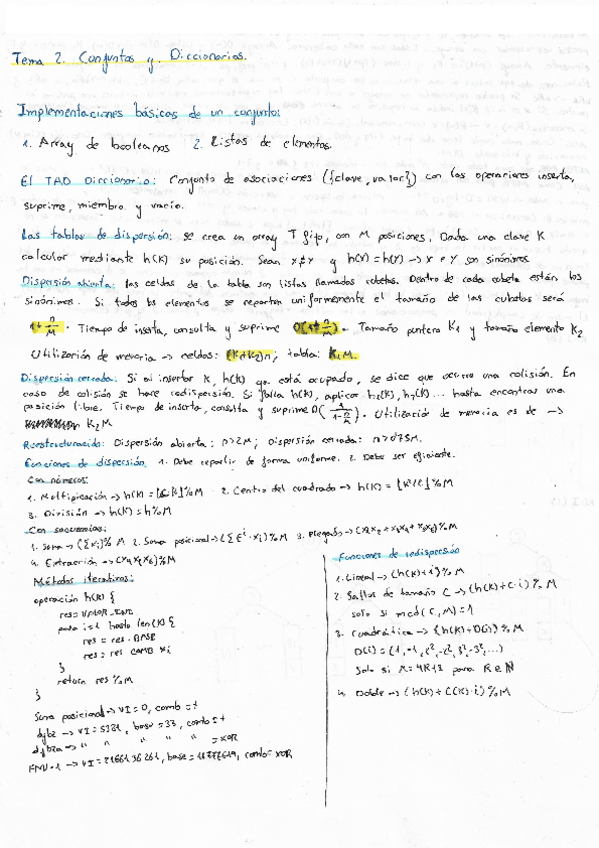 Tema 2. Conjuntos y Diccionarios.
Implementaciones básicas de un conjunto:
1. Array de booleanos 2. Listas de elementos.
El TAD Diccionario: Conjunto de asociaciones ({clave, valor}) con las operaciones inserta,
suprime, miembro y vacío.
Las tablas de dispersión: se crea un array T fijo, con M posiciones. Dada una clave K
calcular mediante h(K) su posición. Sean x≠y y h(x)=h(y) → x e y son sinónimos
Dispersión abierta: las celdas de la tabla son listas llamadas cubetas. Dentro de cada cubeta están los
sinónimos. Si todos los elementos se reparten uniformemente el tamaño de las cubetas será
1+n/M. Tiempo de inserta, consulta y suprime O(1+n/M). Tamaño puntero K1 y tamaño elemento K2
Utilización de memoria → celdas: (K1+K2)n; tabla: K1M.
Dispersión cerrada: Si al insertar K, h(K) ya está ocupado, se dice que ocurre una colisión. En
caso de colisión se hace redispersión. Si falla h(K), aplicar h2(K), h3(K)... hasta encontrar una
posición libre. Tiempo de inserta, consulta y suprime O(1/(1-n/M)). Utilización de memoria es de →
K2M
Reestructuración: Dispersión abierta: n>2M; Dispersión cerrada: n>0'75M.
Funciones de dispersión 1. Debe repartir de forma uniforme. 2. Debe ser eficiente.
Con números:
1. Multiplicación → h(K) = %M 2. Centro del cuadrado → h(K) = %M
3. División → h(K) = K%M
Con secuencias:
1. Suma → (Σxi)%M 2. Suma posicional → (Σ Ei·xi)%M 3. Plegado →
4. Extracción → %M
Métodos iterativos:
operación h(K) {
res = VALOR_INI
para i=1 hasta len(K) {
res = res · BASE
res = res COMB xi
}
return res %M
}
Suma posicional → VI=0, comb = +
djb2 → VI=5381, base=33, comb=+
djb2a → " " " " " =XOR
FNV-1 → VI= , base= , comb=XOR
Funciones de redispersión
1. Lineal → (h(K)+i)%M
2. Saltos de tamaño C → (h(K)+C·i)%M
solo si mcd(C,M)=1
3. Cuadrática → (h(K)+D(i))%M
D(i) = (1,-1,2²,-2²,3²,-3²,...)
Solo si M=4R+3 para R∈N
4. Doble → (h(K)+C(K)·i)%M